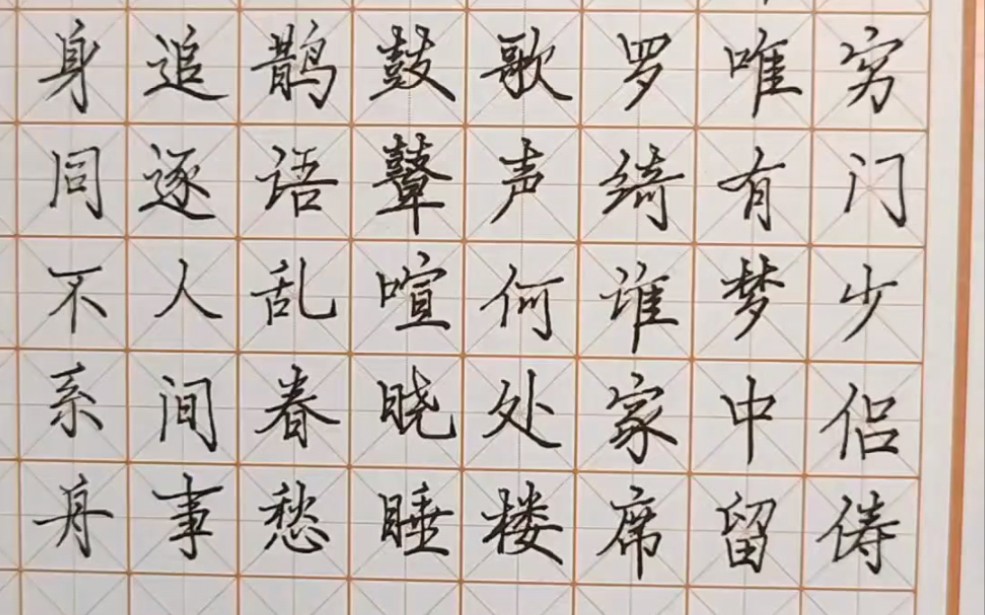 穷门少侣俦
唯有梦中留
罗绮谁家席
歌声何处楼
鼓鼙喧晓睡
鹊语乱春愁
追逐人间事
身同不系舟